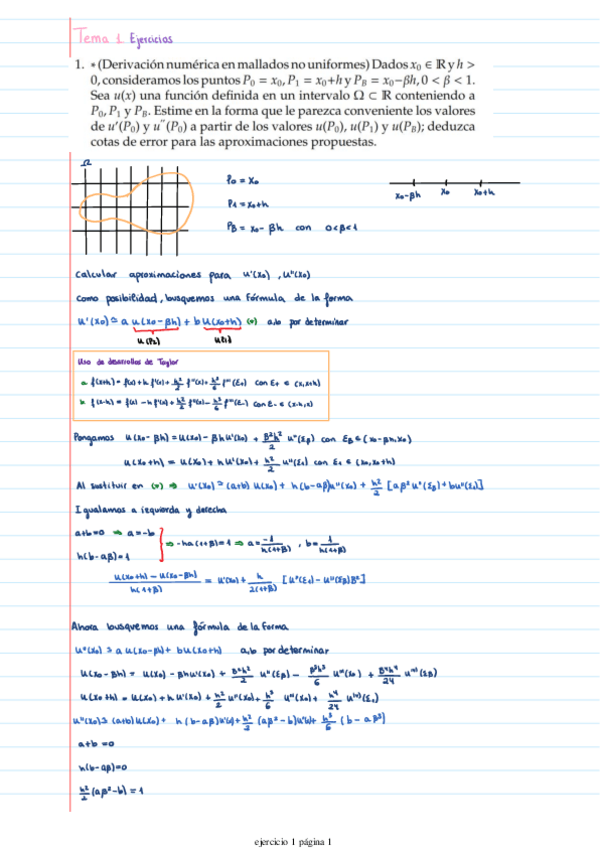 Tema 1 Ejercicios
1. * (Derivación numérica en mallados no uniformes) Dados x₀ ∈ ℝ y h >
0, consideramos los puntos P₀ = x₀, P₁ = x₀+h y P_B = x₀−βh, 0 < β < 1.
Sea u(x) una función definida en un intervalo Ω ⊂ ℝ conteniendo a
P₀, P₁ y P_B. Estime en la forma que le parezca conveniente los valores
de u'(P₀) y u''(P₀) a partir de los valores u(P₀), u(P₁) y u(P_B); deduzca
cotas de error para las aproximaciones propuestas.
Ω
P₀ = x₀
P₁ = x₀+h
P_B = x₀ − βh con 0<β<1
x₀−βh x₀ x₀+h
Calcular aproximaciones para u'(x₀), u''(x₀)
Como posibilidad, busquemos una fórmula de la forma
u'(x₀) ≃ a u(x₀−βh) + b u(x₀+h) (*) a,b por determinar
Uso de desarrollos de Taylor
Pongamos u(x₀−βh) = u(x₀) − βh u'(x₀) + β²h²/2 u''(ξ_β) con ξ_β ∈ (x₀−βh, x₀)
u(x₀+h) = u(x₀) + h u'(x₀) + h²/2 u''(ξ₁) con ξ₁ ∈ (x₀, x₀+h)
Al sustituir en (*) ⇒ u'(x₀) ≃ (a+b) u(x₀) + h(b−aβ)u'(x₀) + h²/2 [aβ² u''(ξ_β) + bu''(ξ₁)]
Igualamos a izquierda y derecha
a+b=0 ⇒ a=−b
h(b−aβ)=1
⇒ −ha(1+β)=1 ⇒ a = −1/h(1+β), b = 1/h(1+β)
u(x₀+h) − u(x₀−βh) / h(1+β) = u'(x₀) + h/2(1+β) [u''(ξ₁) − u''(ξ_β)β²]
Ahora busquemos una fórmula de la forma
u''(x₀) ≃ a u(x₀−β) + b u(x₀+h) a,b por determinar
u(x₀−βh) = u(x₀) − βhu'(x₀) + β²h²/2 u''(ξ_β) − β³h³/6 u'''(x₀) + β⁴h⁴/24 u⁽ⁱᵛ⁾(ξ_β)
u(x₀+h) = u(x₀) + h u'(x₀) + h²/2 u''(x₀) + h³/6 u'''(x₀) + h⁴/24 u⁽ⁱᵛ⁾(ξ₁)
u''(x₀) ≃ (a+b)u(x₀) + h(b−aβ)u'(x₀) + h²/2 (aβ²−b)u''(x₀) + h³/6 (b−aβ³)
a+b=0
h(b−aβ)=0
h²/2 (aβ²−b)=1
ejercicio 1 página 1